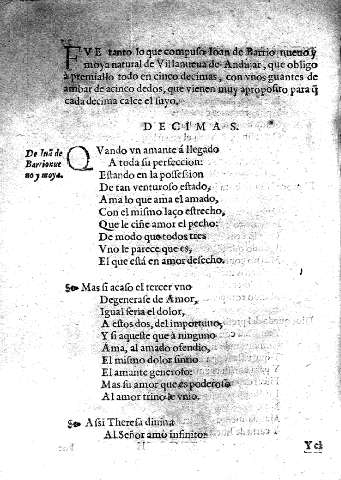 FVE tanto lo que compuso Ioan de Barrio nueuo y
moya natural de Villanueua de Andujar, que obligò
à premiallo todo en cinco decimas, con vnos guantes de
ambar de acinco dedos, que vienen muy aproposito para q̃
cada decima calce el suyo.
DECIMAS.
De Iuã de
Barrionue
uo y moya.
QVando vn amante á llegado
A toda su perfeccion:
Estando en la possession
De tan venturoso estado,
Ama lo que ama el amado,
Con el mismo laço estrecho,
Que le ciñe amor el pecho:
De modo que todos tres
Vno le parece que es,
El que está en amor desecho.
Mas si acaso el tercer vno
Degenerase de Amor,
Igual seria el dolor,
A estos dos, del importuno,
Y si aqueste que à ninguno
Ama, al amado ofendio,
El mismo dolor sintio
El amante generoso:
Mas su amor que es poderoso
Al amor trino le vnio.
Assi Theresa diuina
Al Señor amò infinito
Y cõ